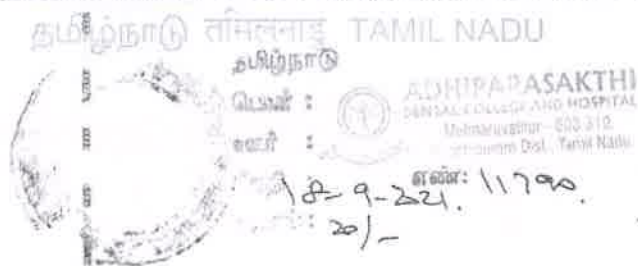 தமிழ்நாடு तमिलनाडु TAMIL NADU
தமிழ்நாடு
பெயர் :
ஊர் :
ADHIPARASAKTHI
DENTAL COLLEGE AND HOSPITAL
Melmaruvathur - 603 319
Dist., Tamil Nadu
எண்: 11790.
18-9-2021.
: 20/-